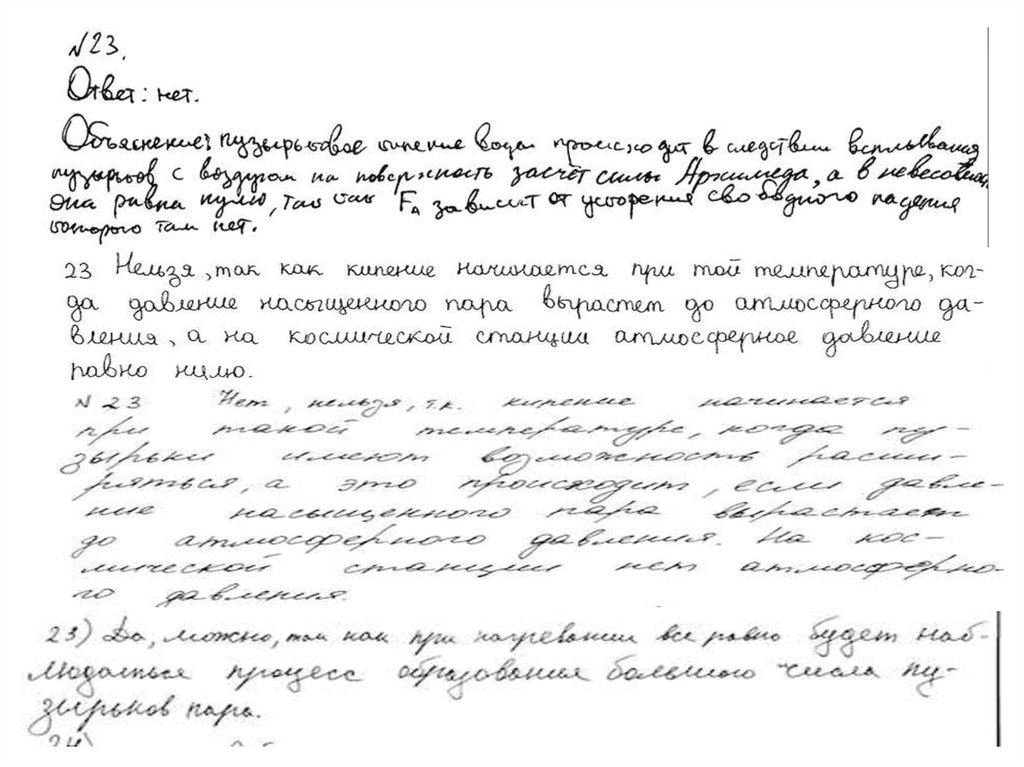 №23.
Ответ: нет.
Объяснение: пузырьковое кипение воды происходит в следствии всплывания
пузырьков с воздухом на поверхность засчёт силы Архимеда, а в невесомости
она равна нулю, так как FА зависит от ускорения свободного падения
которого там нет.
23 Нельзя, так как кипение начинается при той температуре, ког-
да давление насыщенного пара вырастет до атмосферного да-
вления, а на космической станции атмосферное давление
равно нулю.
№ 23 Нет, нельзя, т.к. кипение начинается
при такой температуре, когда пу-
зырьки имеют возможность расши-
ряться, а это происходит, если давле-
ние насыщенного пара вырастает
до атмосферного давления. На кос-
мической станции нет атмосферно-
го давления.
23) Да, можно, так как при нагревании все равно будет наб-
людаться процесс образования большого числа пу-
зырьков пара.
24)